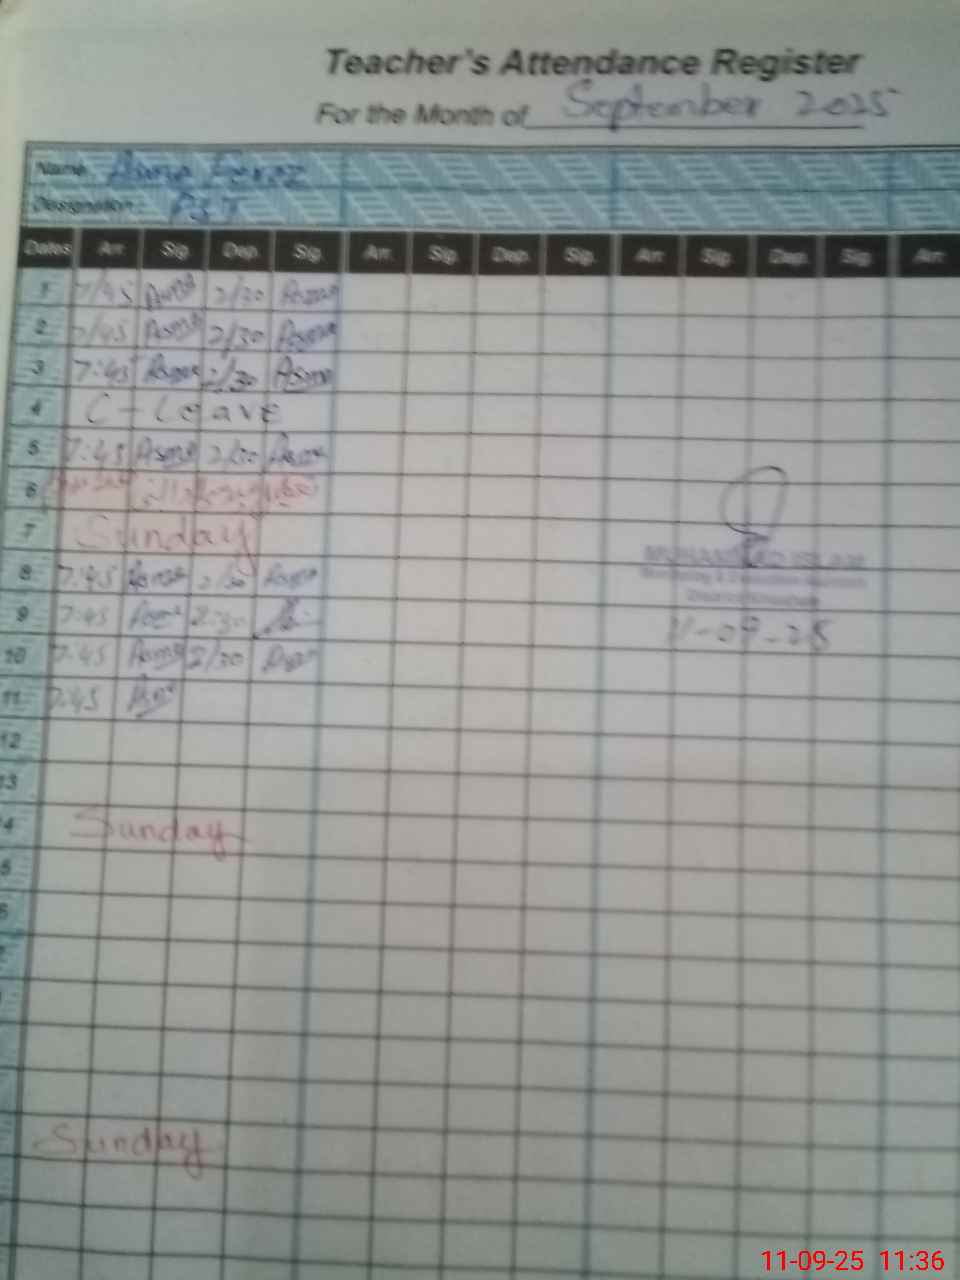 Teacher's Attendance Register
For the Month of September 2025
Name Asma
Designation: PST
Dates Arr. Sig. Dep. Sig. Arr. Sig. Dep. Sig. Arr. Sig. Dep. Sig. Arr.
1 7/45 Asma 2/30 Asma
2 7/45 Asma 2/30 Asma
3 7:45 Asma 2/30 Asma
4 C-Leave
5 7:45 Asma 2/30 Asma
6
7 Sunday
8 7:45 Asma 2/30 Asma
9 7:45 Asma 2:30
10 7:45 Asma 2/30 Asma
11 7:45 Asma
11-09-25
12
13
14 Sunday
Sunday
11-09-25 11:36